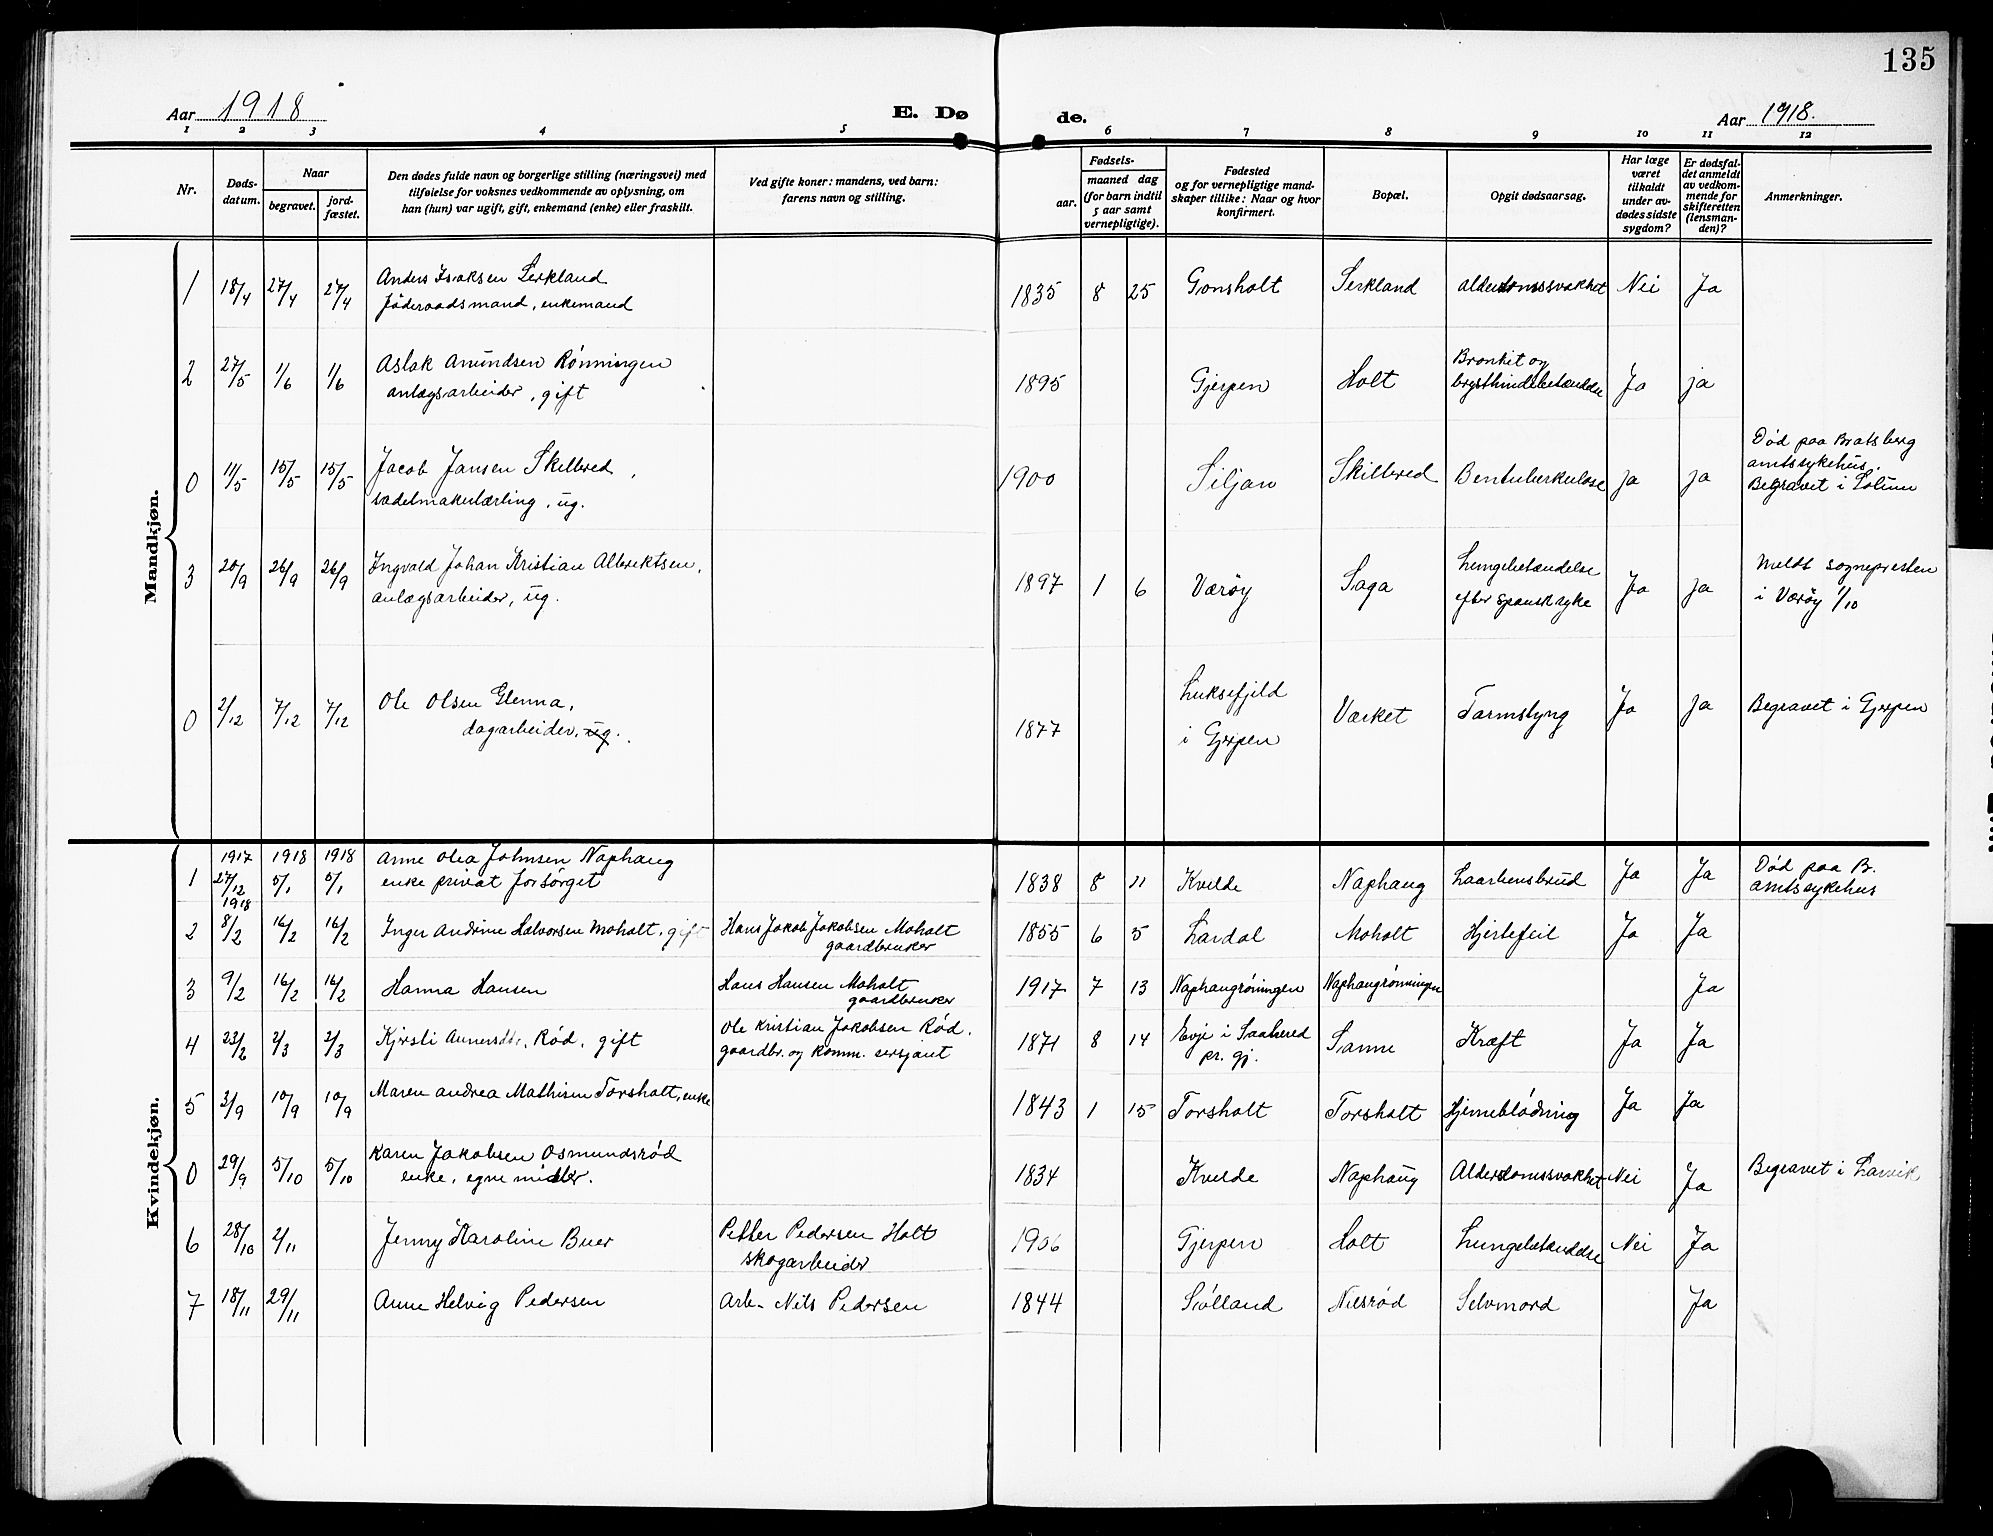 135
Aar 1918
E. Dø
de.
Aar 1918.
1 2 3 4 5 6 7 8 9 10 11 12
Nr.
Døds-
datum.
Naar
begravet.
jord-
fæstet.
Den dødes fulde navn og borgerlige stilling (næringsvei) med
tilføielse for voksnes vedkommende av oplysning, om
han (hun) var ugift, gift, enkemand (enke) eller fraskilt.
Ved gifte koner: mandens, ved barn:
farens navn og stilling.
Fødsels-
aar.
maaned dag
(for barn indtil
5 aar samt
vernepligtige).
Fødested
og for vernepligtige mand-
skaper tillike: Naar og hvor
konfirmert.
Bopæl.
Opgit dødsaarsag.
Har læge
været
tilkaldt
under av-
dødes sidste
sygdom?
Er dødsfal-
det anmeldt
av vedkom-
mende for
skifteretten
(lensman-
den)?
Anmerkninger.
Mandkjøn.
1 18/4 27/4 27/4 Anders Isaksen Serkland
föderaadsmand, enkemand
1835 8 25 Gonsholt Serkland alderdomssvakhet Nei Ja
2 27/5 1/6 1/6 Aslak Amundsen Rönningen
anlægsarbeider, gift
1895 Gjerpen Holt Bronkit og
brysthindebetændelse Ja ja
0 11/5 15/5 15/5 Jacob Jansen Skilbred
sadelmakerlærling, ug.
1900 Siljan Skilbred Bentuberkulose ja ja
Död paa Bratsberg
amtssykehus.
Begravet i Solum
3 20/9 26/9 26/9 Ingvald Johan Kristian Albrektsen,
anlægsarbeider, ug.
1897 1 6 Værøy Saga Lungebetændelse
efter spansk syke Ja ja
Meldt sognepresten
i Værøy 1/10
0 2/12 7/12 7/12 Ole Olsen Glenna,
dagarbeider, ug.
1877 Luksefjeld
i Gjerpen Værket Tarmslyng Ja ja Begravet i Gjerpen
Kvindekjøn.
1917 1918 1918
1 27/12 5/1 5/1 Anne Olea Johnsen Naphaug
enke privat forsørget
1838 8 11 Kvelde Naphaug Laarbensbrud Ja Ja
Død paa B.
amtssykehus
1918
2 8/2 16/2 16/2 Inger Andrine Halvorsen Moholt, gift Hans Jakob Jakobsen Moholt
gaardbruker
1855 6 5 Lardal Moholt Hjertefeil Ja Ja
3 9/2 16/2 16/2 Hanna Hansen Hans Hansen Moholt
gaardbruker
1917 7 13 Naphaugröningen Naphaugrönningen Ja
4 23/2 2/3 2/3 Kjersti Annersdtr. Rød, gift Ole Kristian Jakobsen Rød.
gaardbr. og komm. sersjant
1871 8 14 Evje i
pr. gj. Sanne Kræft Ja Ja
5 3/9 10/9 10/9 Maren Andrea Mathisen Torsholt, enke
1843 1 15 Torsholt Torsholt Hjerneblödning Ja Ja
0 29/9 5/10 5/10 Karen Jakobsen Osmundsrød
enke, egne midler.
1834 Kvelde Naphaug Alderdomssvakhet Nei Ja Begravet i Larvik
6 28/10 2/11 Jenny Karoline Buer Petter Pedersen Holt
skogarbeider
1906 Gjerpen Holt Lungebetændelse Nei Ja
7 18/11 29/11 Anne Helvig Pedersen Arb. Nils Pedersen
1844 Siölland Nilsrød Selvmord Ja